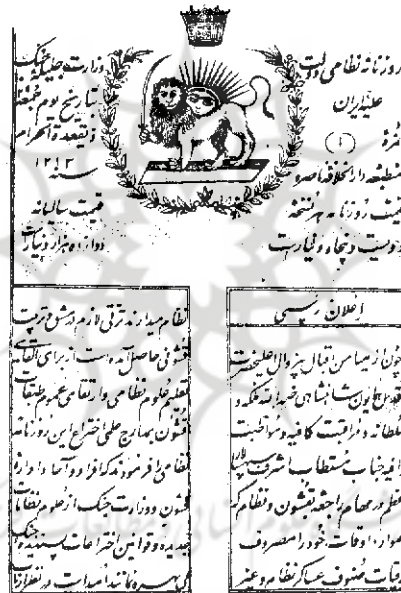 روزنامه نظامی دولت
علیّه ایران
نمره
(۱)
منطبعه دارالخلافه ناصره
قیمت روزنامه هر نسخه
دویست و پنجاه دینار است
وزارت جلیله جنگ
بتاریخ یوم
ذیقعدة الحرام
سنه ۱۲۱۳
قیمت سالیانه
دوازده هزار دینار است
اعلان رسمی
چون از میامن اقبال بیزوال اعلیحضرت
همایون شاهنشاهی خلدالله ملکه و
سلطانه و مراقبت کافیه و مواظبت
وافیه جناب مستطاب اشرف سپهسالار
اعظم در مهام راجعه بقشون و نظام که
همواره اوقات خود را مصروف
صنوف عساکر نظام و غیر
نظام میدارند ترقی لازم در مشق و تربیت
قشونی حاصل آمده است برای القای
تعلیم علوم نظامی و ارتقای عموم طبقات
قشون بمدارج علمی اختراع این روزنامه
نظامی را فرمودند که افراد و آحاد و ادارات
قشون و وزارت جنگ از علوم نظامات
جدیده و قوانین اختراعات پسندیده جنگ
بی بهره نمانند امید است در نظر ارباب